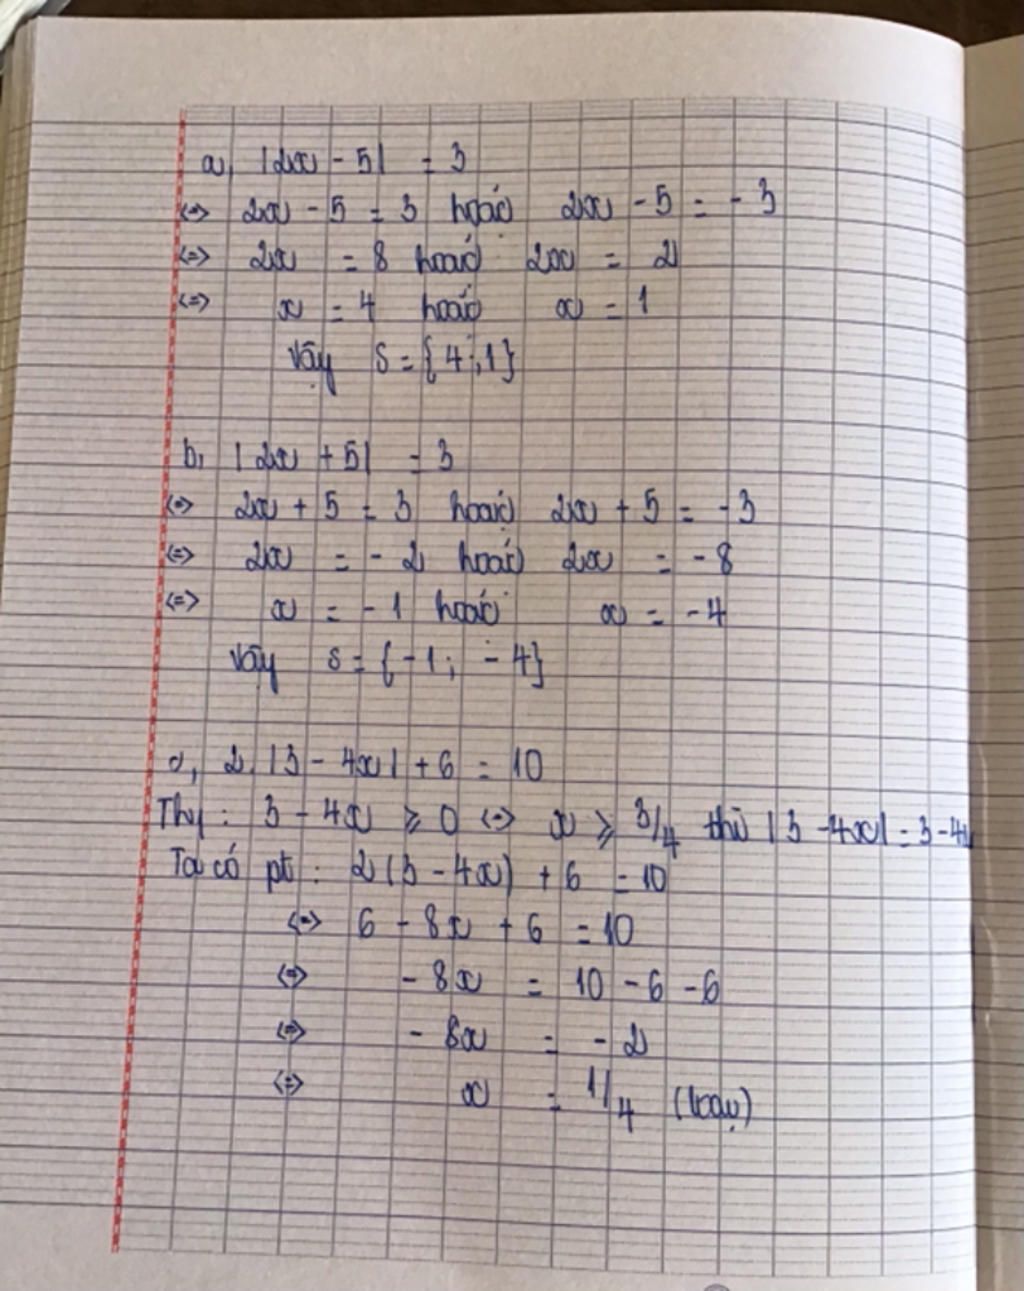 a, |2x - 5| = 3
<=> 2x - 5 = 3 hoặc 2x - 5 = - 3
<=> 2x = 8 hoặc 2x = 2
<=> x = 4 hoặc x = 1
Vậy S = {4 ; 1}
b, |2x + 5| = 3
<=> 2x + 5 = 3 hoặc 2x + 5 = -3
<=> 2x = - 2 hoặc 2x = - 8
<=> x = - 1 hoặc x = - 4
Vậy S = {-1 ; - 4}
c, 2.|3 - 4x| + 6 = 10
TH1 : 3 - 4x ≥ 0 <=> x ≥ 3/4 thì |3 - 4x| = 3 - 4x
Ta có pt : 2(3 - 4x) + 6 = 10
<=> 6 - 8x + 6 = 10
<=> - 8x = 10 - 6 - 6
<=> - 8x = - 2
<=> x = 1/4 (loại)